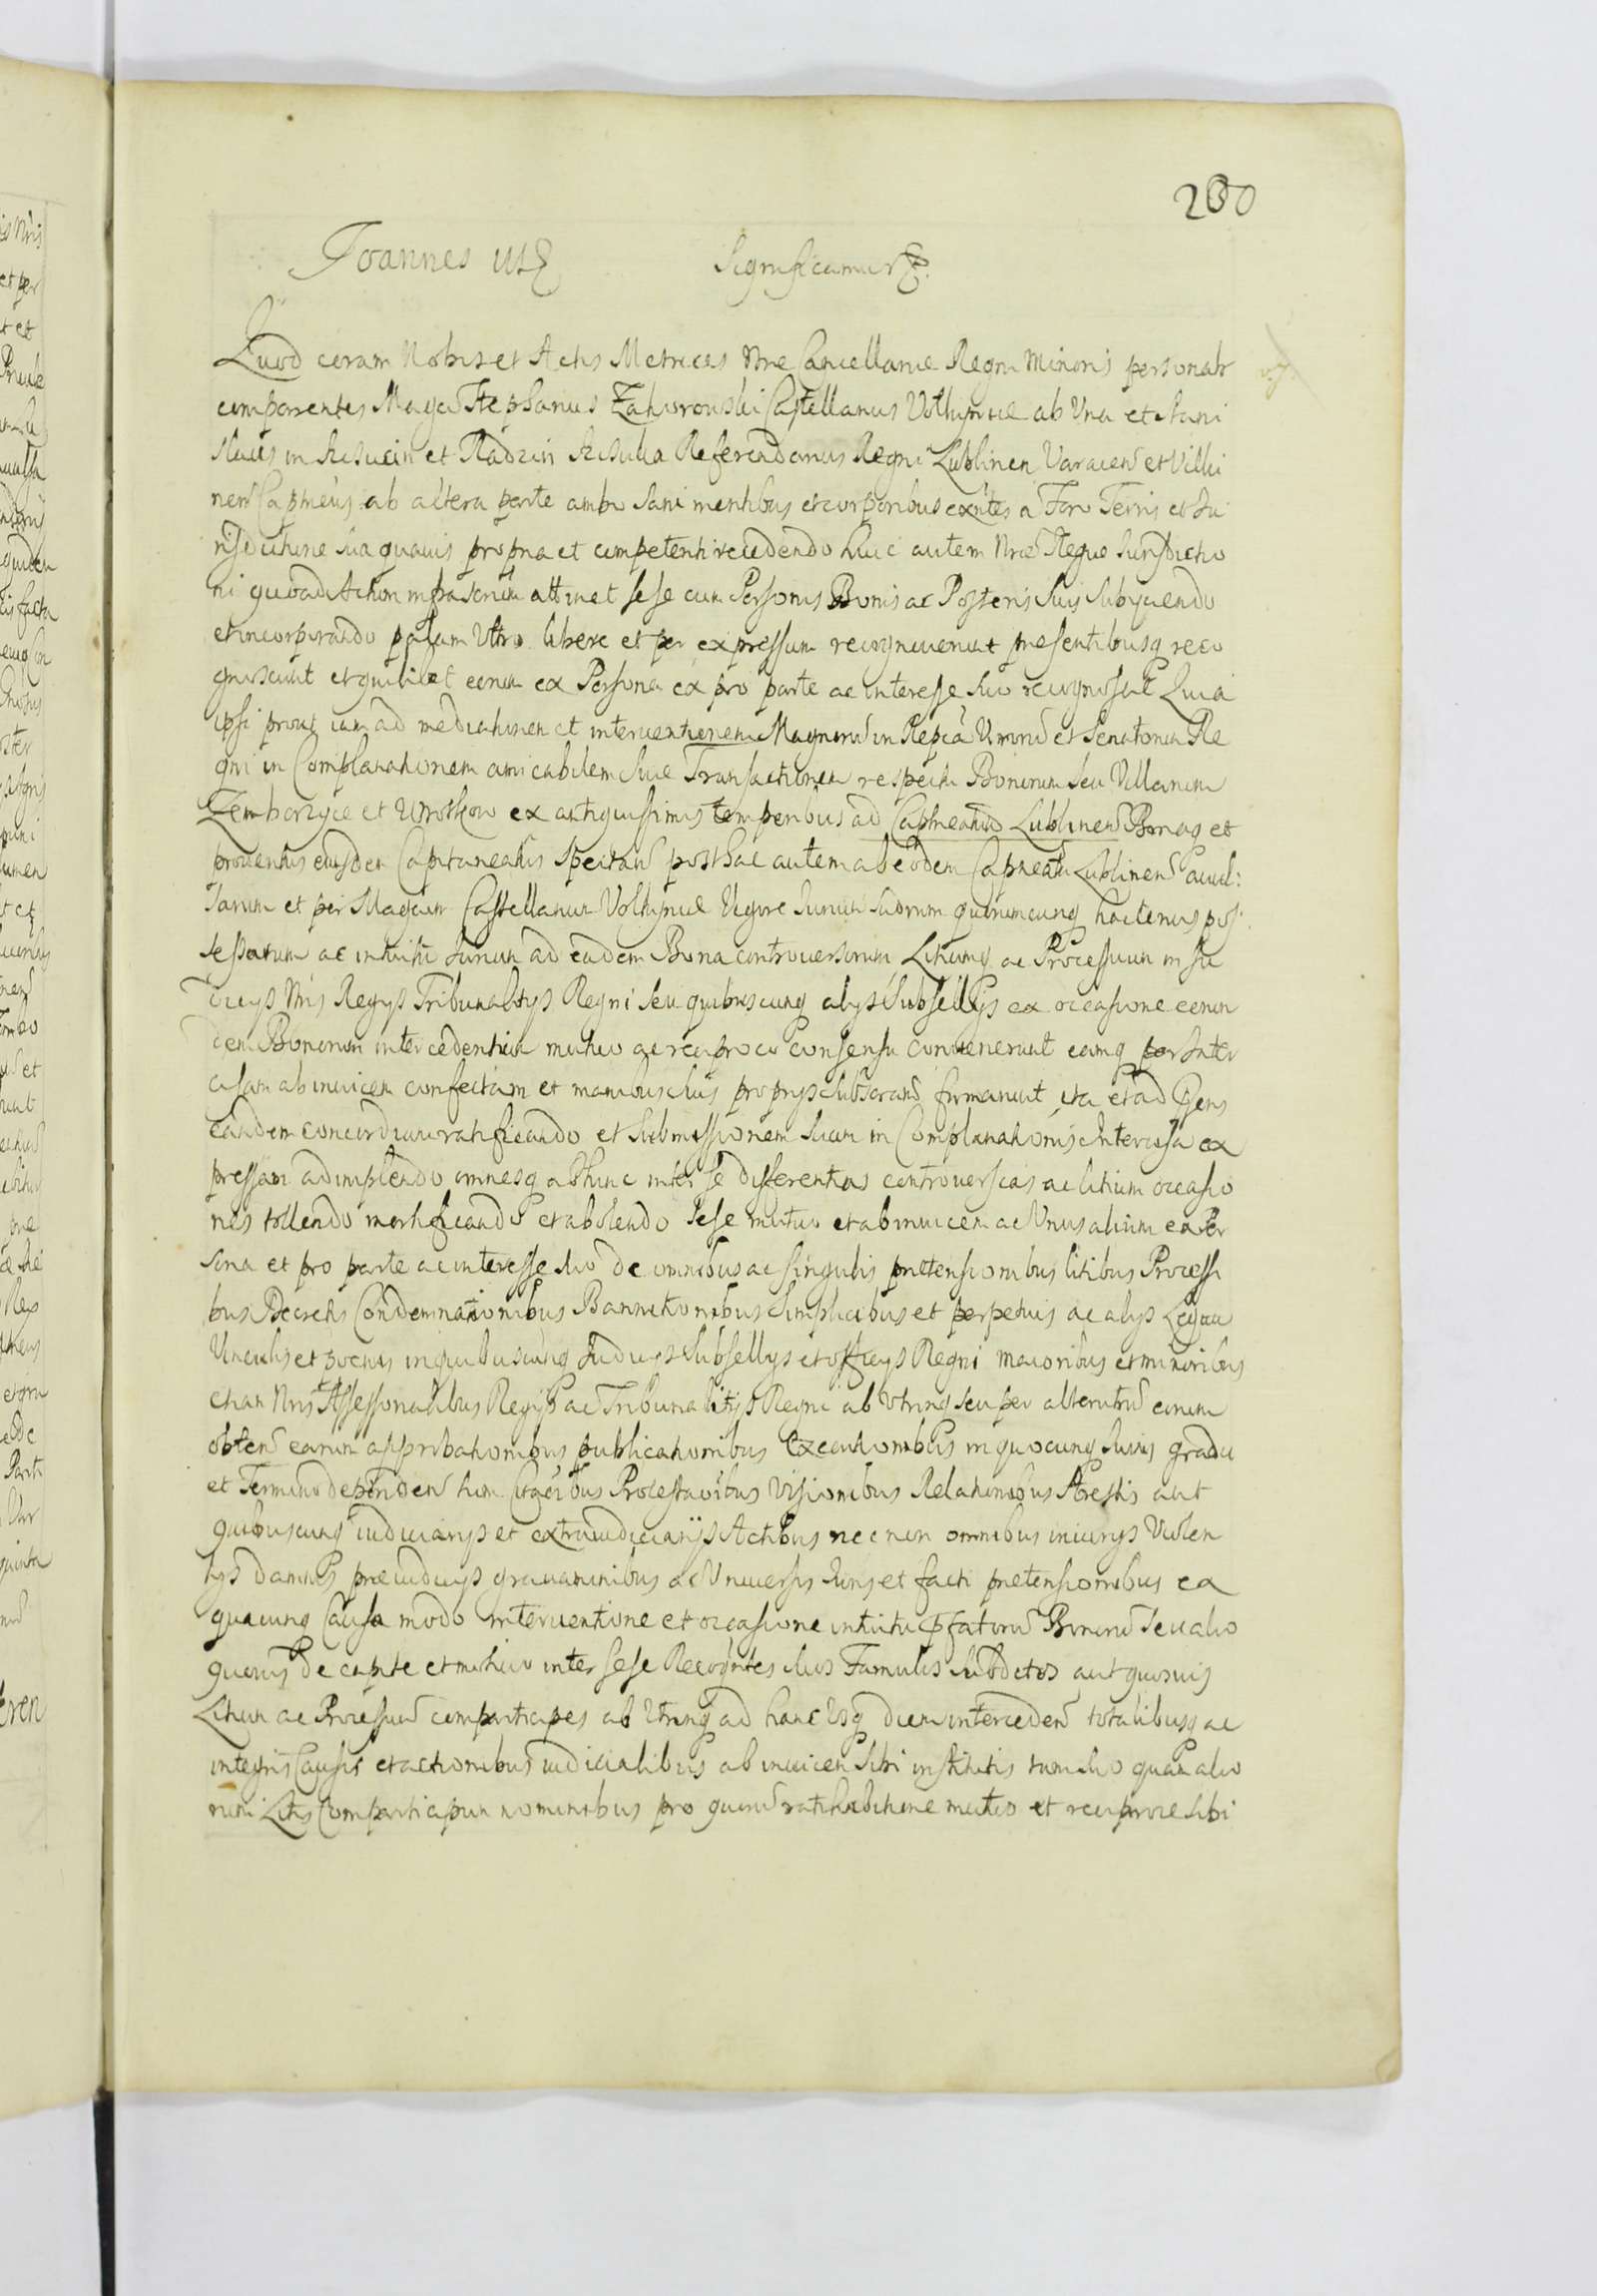 200
Joannes 3tius Significamus etc.
Quod coram Nobis et Actis Metrices Nrae Cancellariae Regni Minoris personalr
comparentes Magci Stephanus Zahorowski Castellanus Volhyniae ab Una et Stani
slaus in et Radzin Referendarius Regni Lublinen et
nen Capneus ab altera parte ambo sani mentibus et corporibus exntes a Foro Terris et Ju
risdictione sua quavis propria et competenti recedendo huic autem Nrae Regiae Jurisdictio
ni quoad Actum infrascrium attinet sese cum Personis Bonis ac Posteris suis subyciendo
et incorporando palam Ultro libere et per expressum recognoverunt presentibusq reco
gnoscunt et quilibet eorum ex Persona ex pro parte ac interesse suo recognoscat Quia
ipsi prout iam ad mediationem et interventionem Magnorum in Repca Virorum et Senatorum Re
gni in Complanationem amicabilem sive Transactionem respectu Bonorum seu Villarum
Zemborzyce et Wrotkow ex antiquissimis temporibus ad Capneatum Lublinen Bonaq et
proventus eiusdem Capitaneatus spectan posthac autem ab eodem Capneatu Lublinen avul:
sarum et per Magcum Castellanum Volhyniae Vigore Jurium suorum quorumcunq hactenus pos
sessarum ac intuitu Jurium ad eadem Bona controversorum Litiumq ac Processuum in Ju
dicys Nris Regys Tribunalitys Regni seu quibuscunq alys Subsellys ex occasione eorun
dem Bonorum intercedentium mutuo ac reciproco consensu convenerunt eamq per Inter
cisam ab invicem confectam et manibus suis proprys subscran firmarunt ita et ad Psens
eandem concordiam ratificando et submissionem suam in Complanationis Intercisa ex
pressam adimplendo omnesq abhinc inter se differentias controversias ac litium occasio
nes tollendo mortificando et abolendo Sese mutuo et ab invicem ac Unus alium ex Per
sona et pro parte ac interesse suo de omnibus ac singulis pretensionibus litibus Processi
bus Decretis Condemnationibus Bannitionibus simplicibus et perpetuis ac alys Legum
Vinculis et poenis in quibuscunq Judicys Subsellys et officys Regni maioribus et minoribus
etiam Nris Assessorialibus Regys ac Tribunalitys Regni ab utrinq seu per alterutrum eorum
obten earum approbationibus publicationibus Executionibus in quocunq Juris gradu
et Termino dependen tum Citaonibus Protestaoibus Visionibus Relationibus Arestis aut
quibuscunq iudiciarys et extraiudiciarijs Actibus nec non omnibus iniurys Violen
tys damnis praeiudicys gravaminibus ac Universis Juris et facti pretensionibus ex
quacunq Causa modo interventione et occasione intuitu pfatorum Bonorum seu alio
quovis de capite et motivo inter sese Recogntes suos Famulos subditos aut quosvis
Litium ac Processuum comparticipes ab Utrinq ad hanc Usq diem interceden totalibusq ac
integris Causis et actionibus iudicialibus ab invicem sibi institutis tum suo quam alio
rum Litis Comparticipum nominibus pro quorum ratihabitione mutuo et reciproce sibi